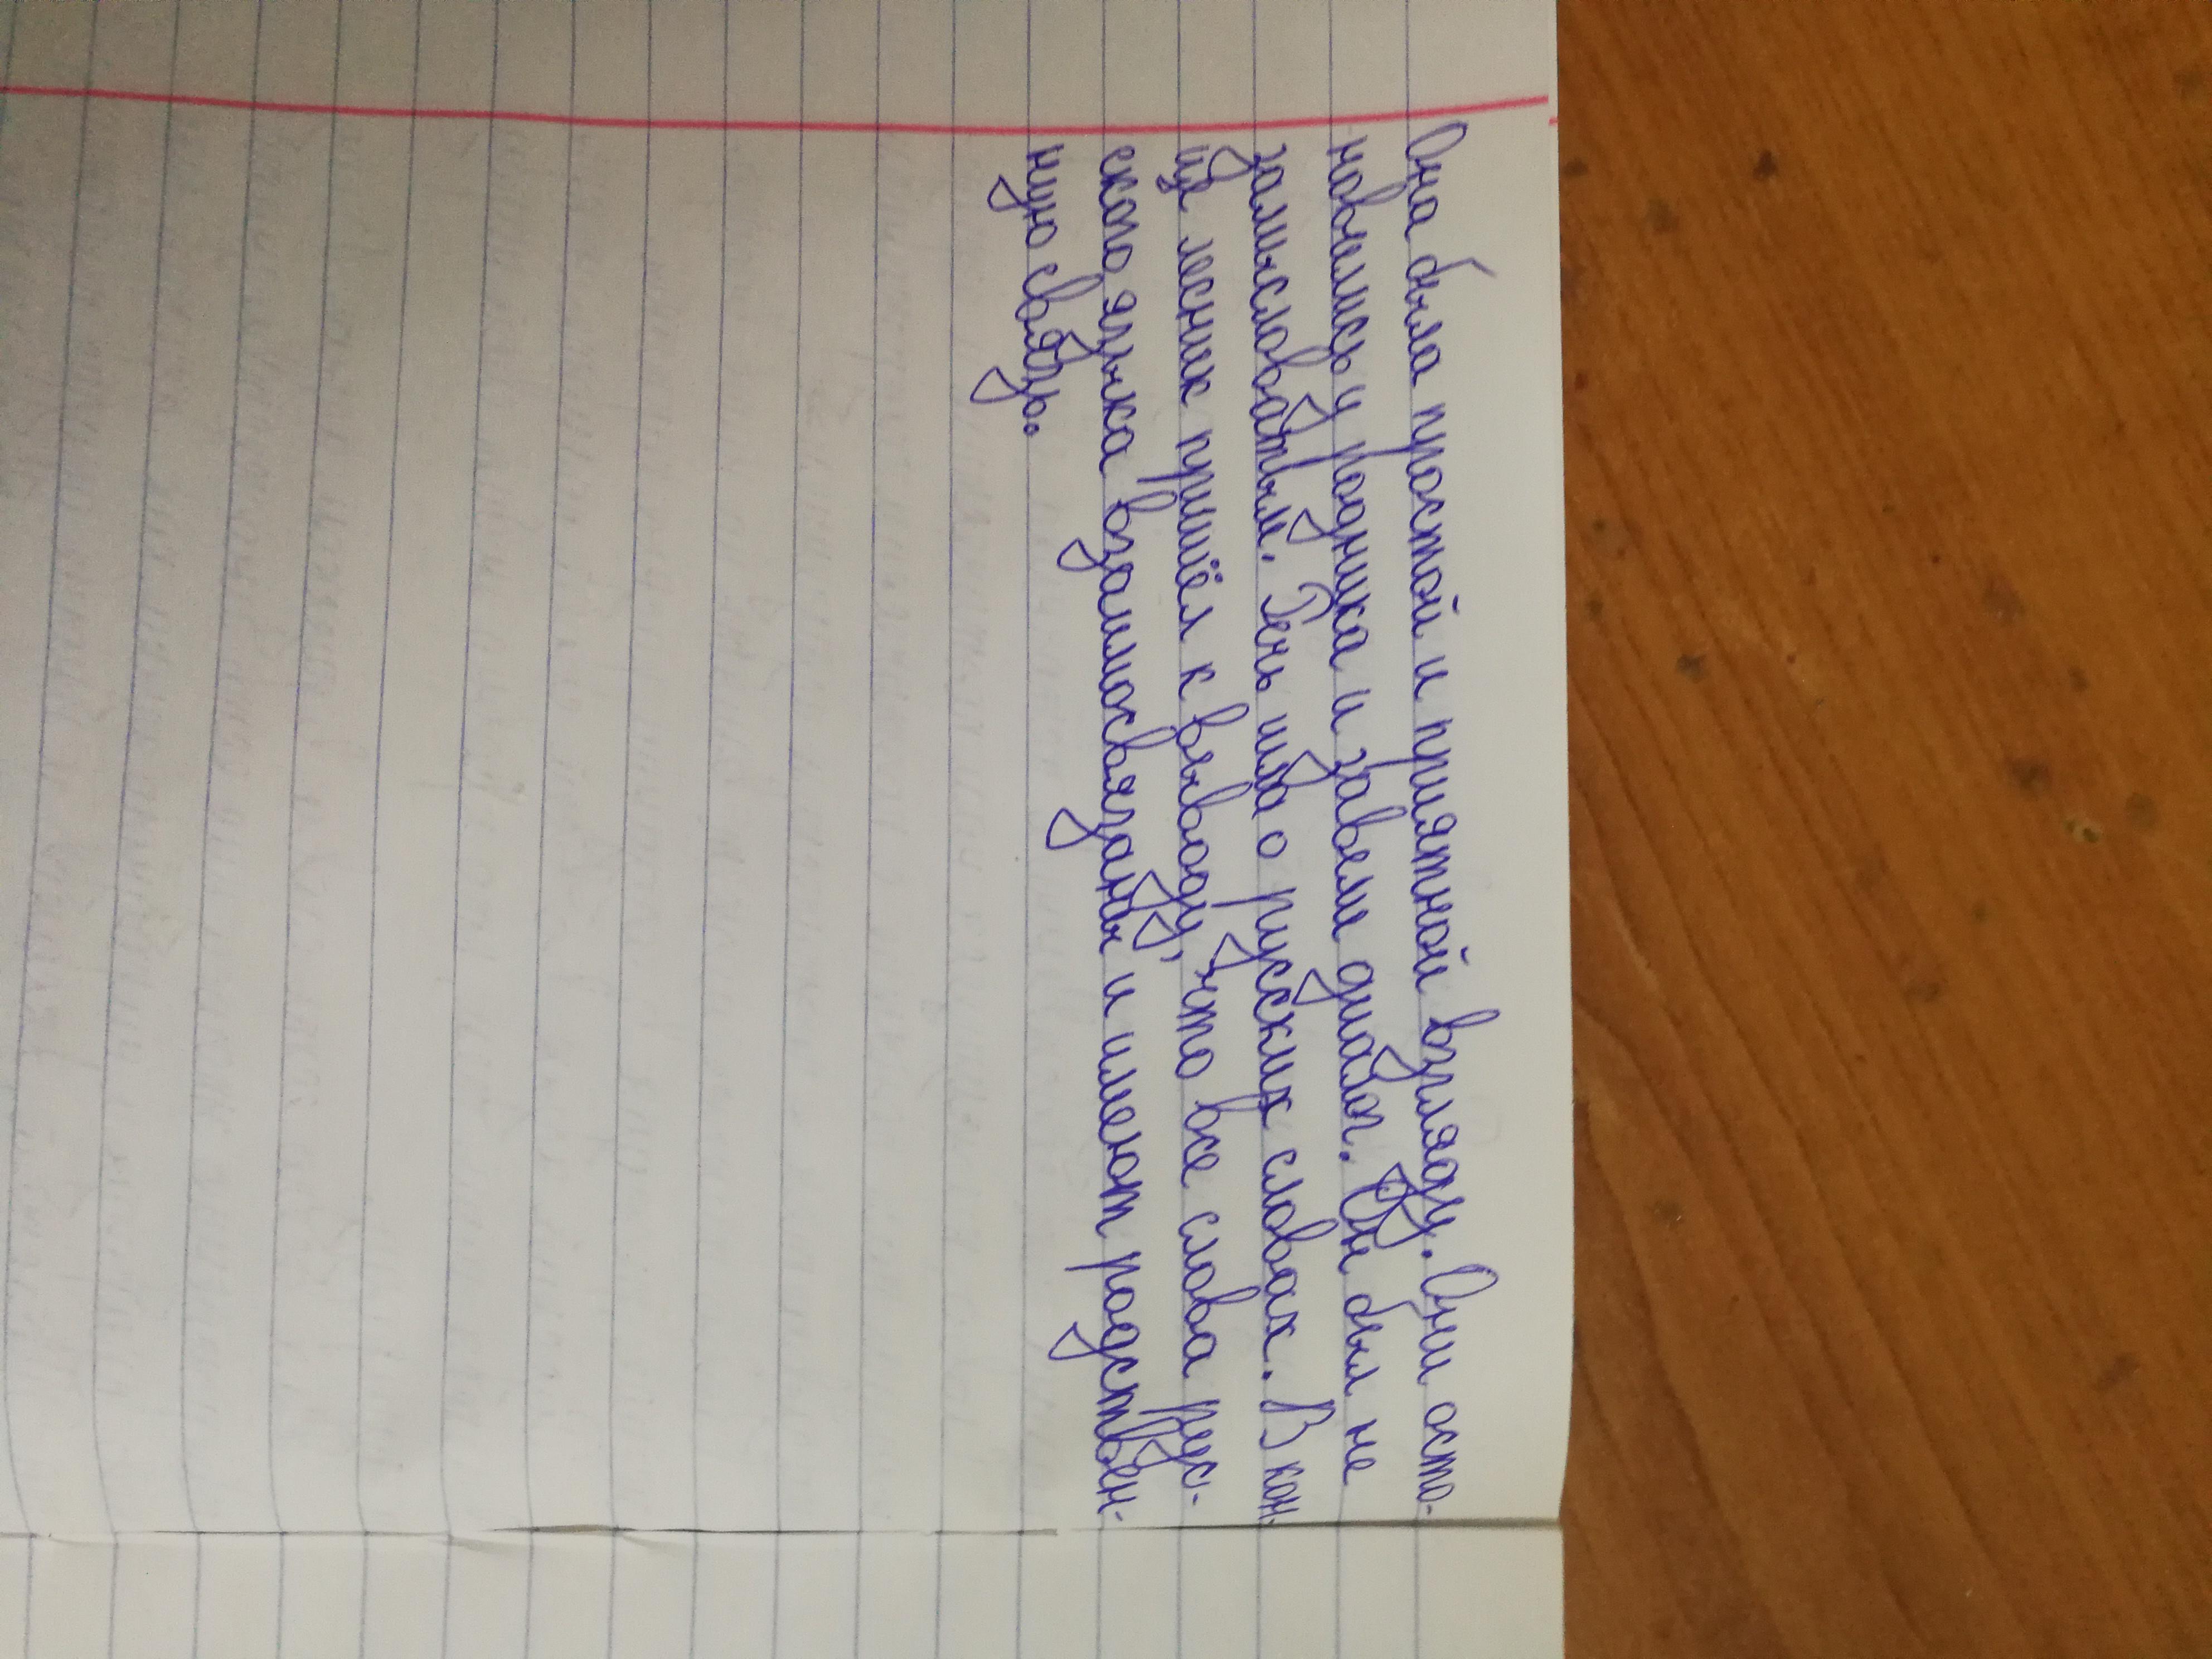 Она была простой и приятной взгляду. Они оста-
новились у родника и завели диалог. Он был не
замысловатым. Речь шла о русских словах. В кон-
це лесник пришёл к выводу, что все слова рус-
ского языка взаимосвязаны и имеют родствен-
ную связь.